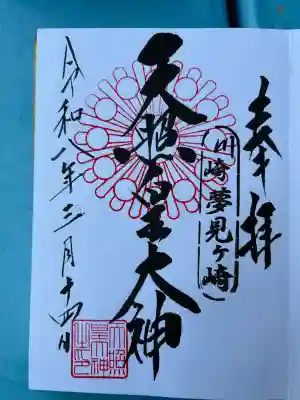 奉拝
(川崎夢見ヶ崎)
天照皇大神
令和八年三月十四日
天照
皇大神
之印